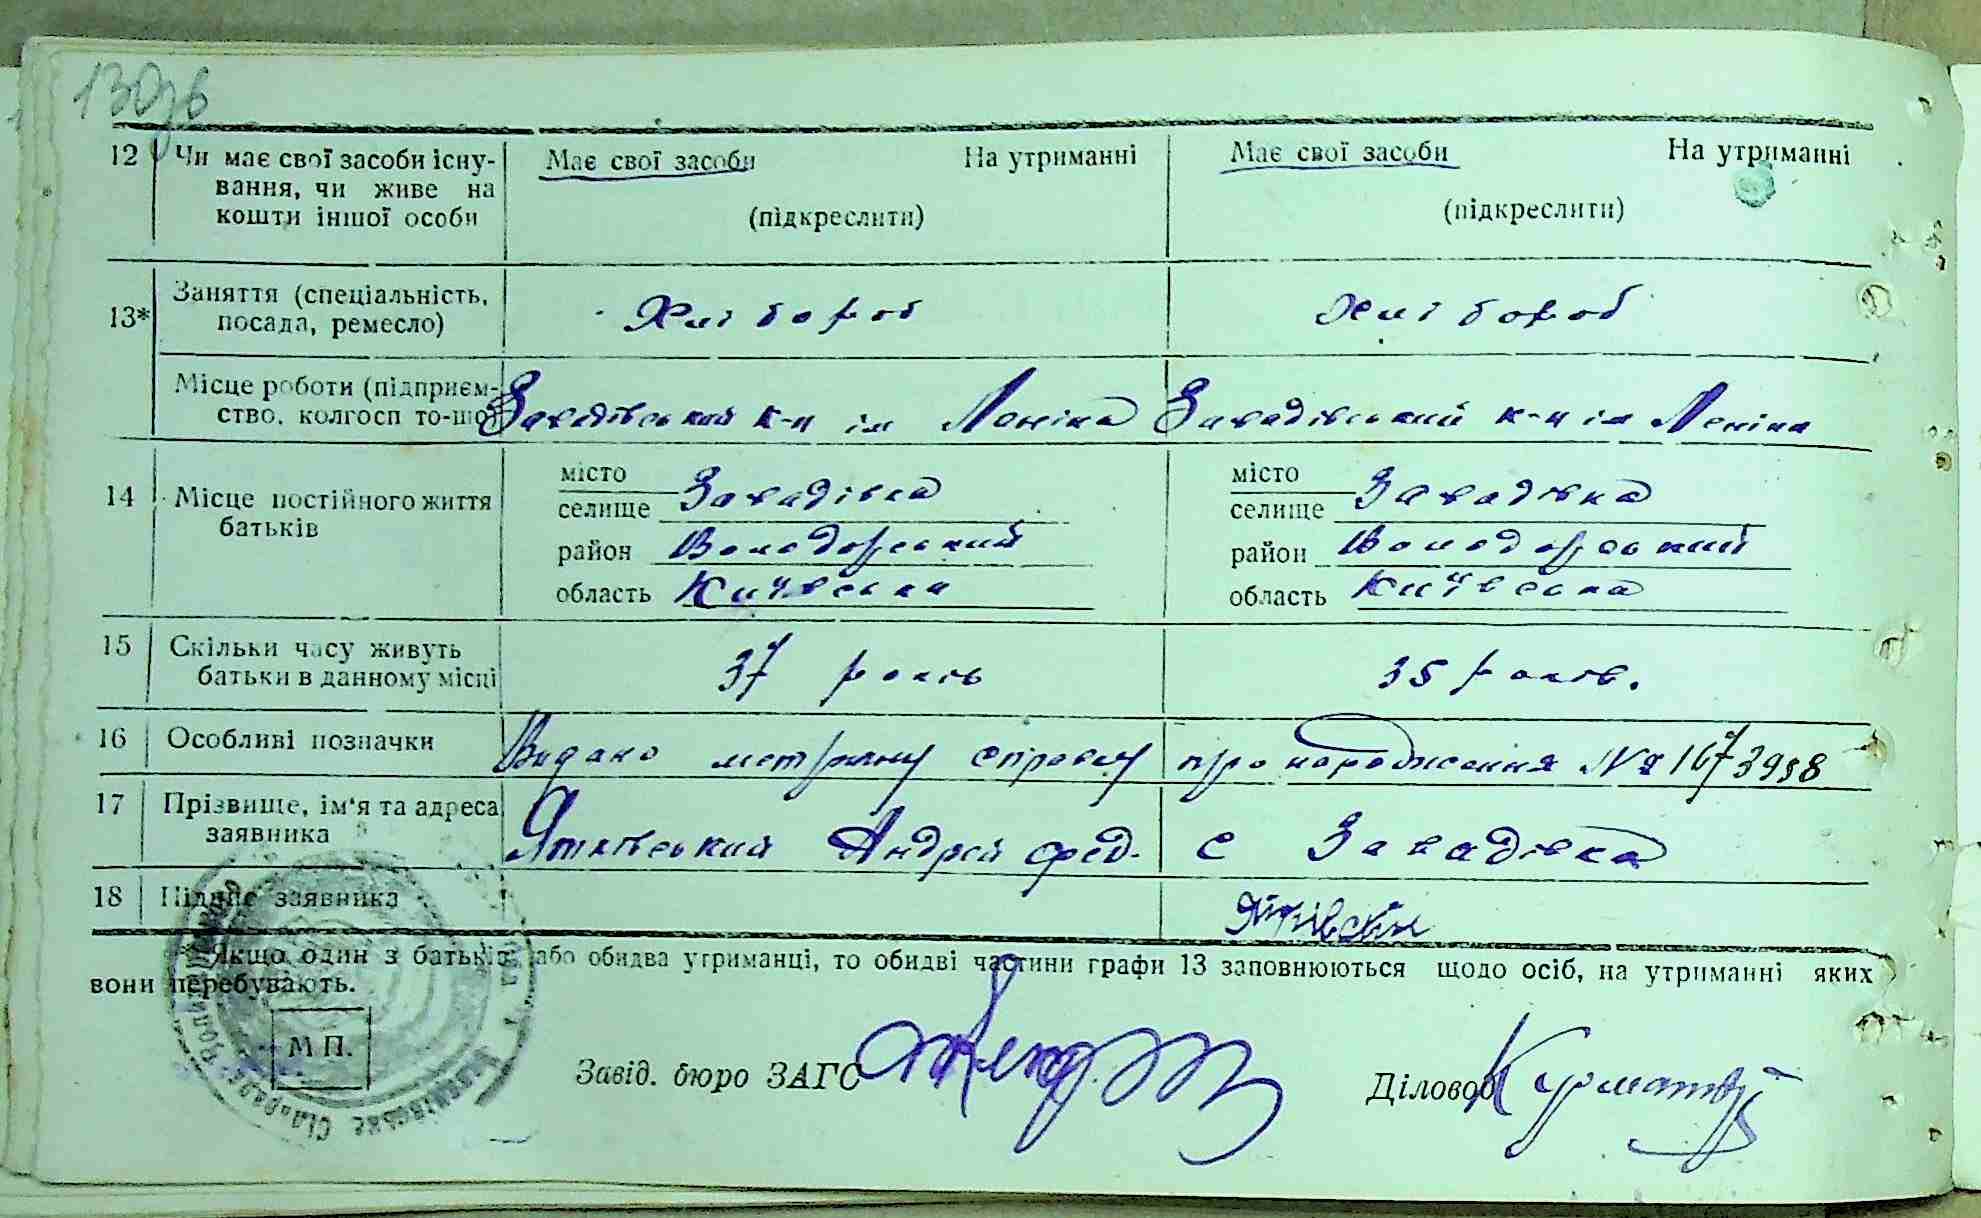 130зв
12 Чи має свої засоби існу- Має свої засоби На утриманні Має свої засоби На утриманні
вання, чи живе на
кошти іншої особи (підкреслити) (підкреслити)
13* Заняття (спеціальність, Хлібороб Хлібороб
посада, ремесло)
Місце роботи (підприєм- Завадівський к-п ім Леніна Завадівський к-п ім Леніна
ство, колгосп то-що)
14 Місце постійного життя місто Завадівка місто Завадівка
батьків селище селище
район Володарський район Володарський
область Київська область Київська
15 Скільки часу живуть 37 років 35 років.
батьки в данному місці
16 Особливі позначки Видано метричну справку про народження №
17 Прізвище, ім'я та адреса Андрій Фед. с Завадівка
заявника
18 Підпис заявника
* Якщо один з батьків або обидва утриманці, то обидві частини графи 13 заповнюються щодо осіб, на утриманні яких
вони перебувають.
М П.
Завід. бюро ЗАГС Діловод